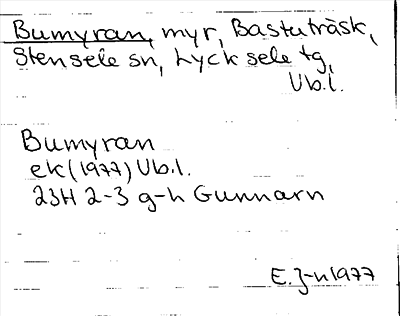 Bumyran, myr, Bastuträsk,
Stensele sn, Lycksele tg,
Vb.l.
Bumyran
ek (1977) Vb.l.
23H 2-3 g-h Gunnarn
E. J-n 1977